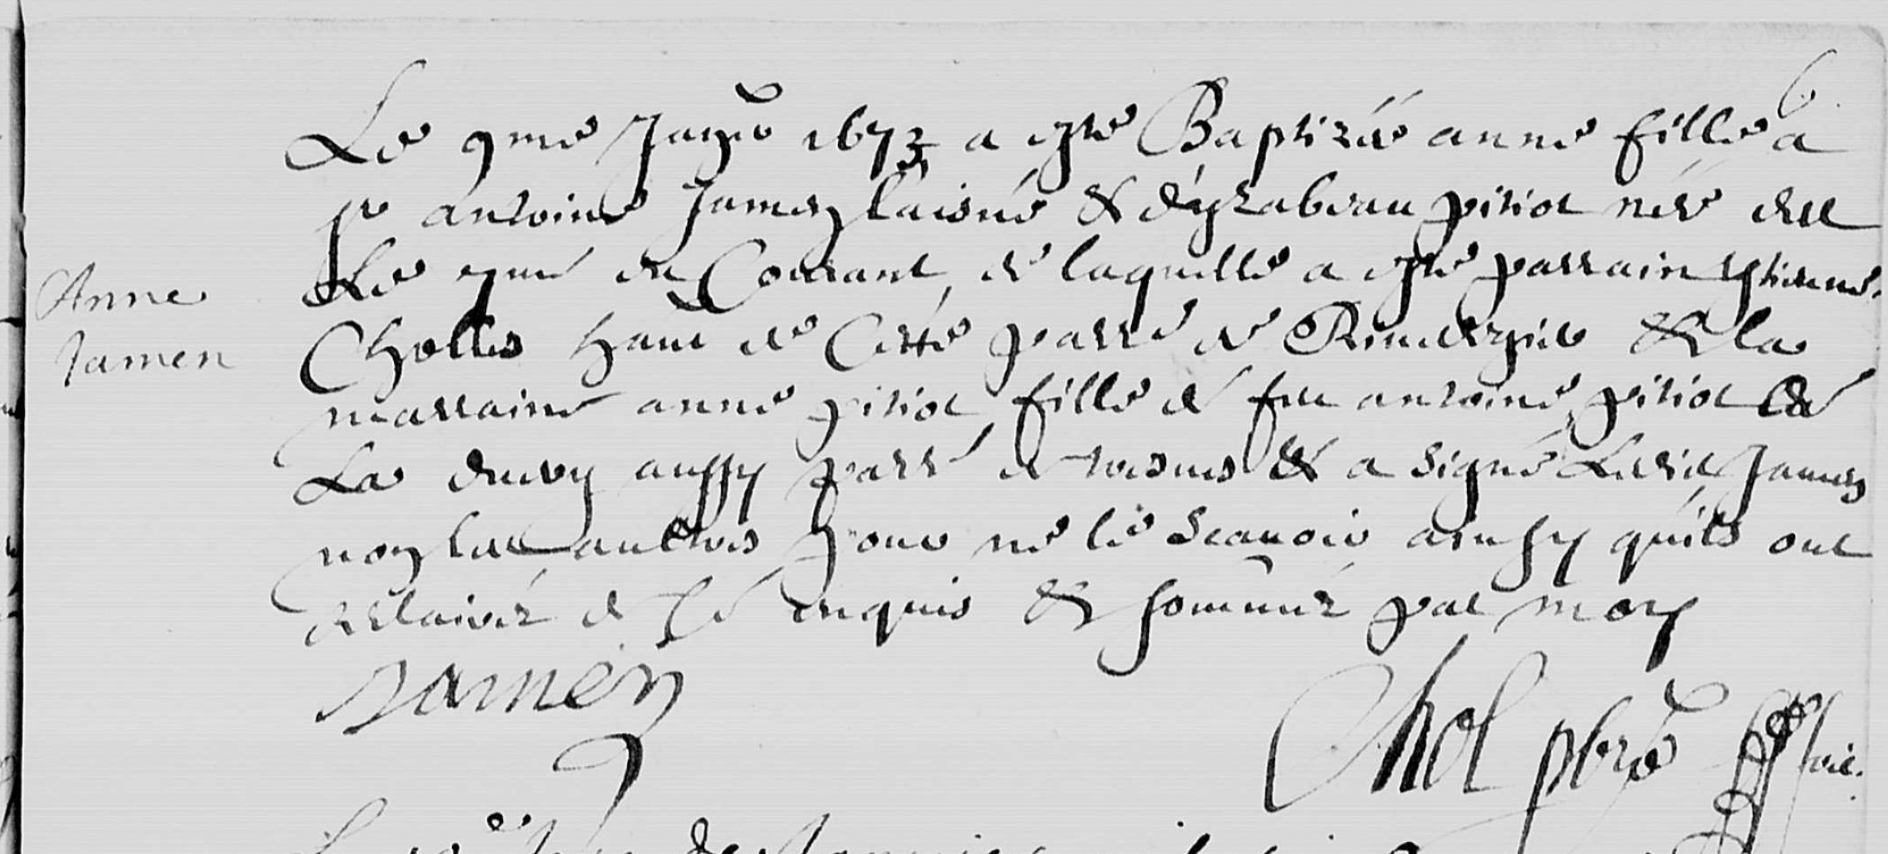 6
Le 9me Janvr 1673 a esté Baptizée anne fille a
Sr antoine Jamen laisné & d'yzabeau pitiot née
Le du Courant, de laquelle a esté parrain estienne
Anne
Chollet hant de Cette parre de & la
Jamen
marraine anne pitiot fille de feu antoine pitiot de
La aussy parre de & a signé Ledit Jamen
non les aultres pour ne le scauoir ainsy quils ont
de ce enquis & sommés par moy
Jamen
Chol pbre